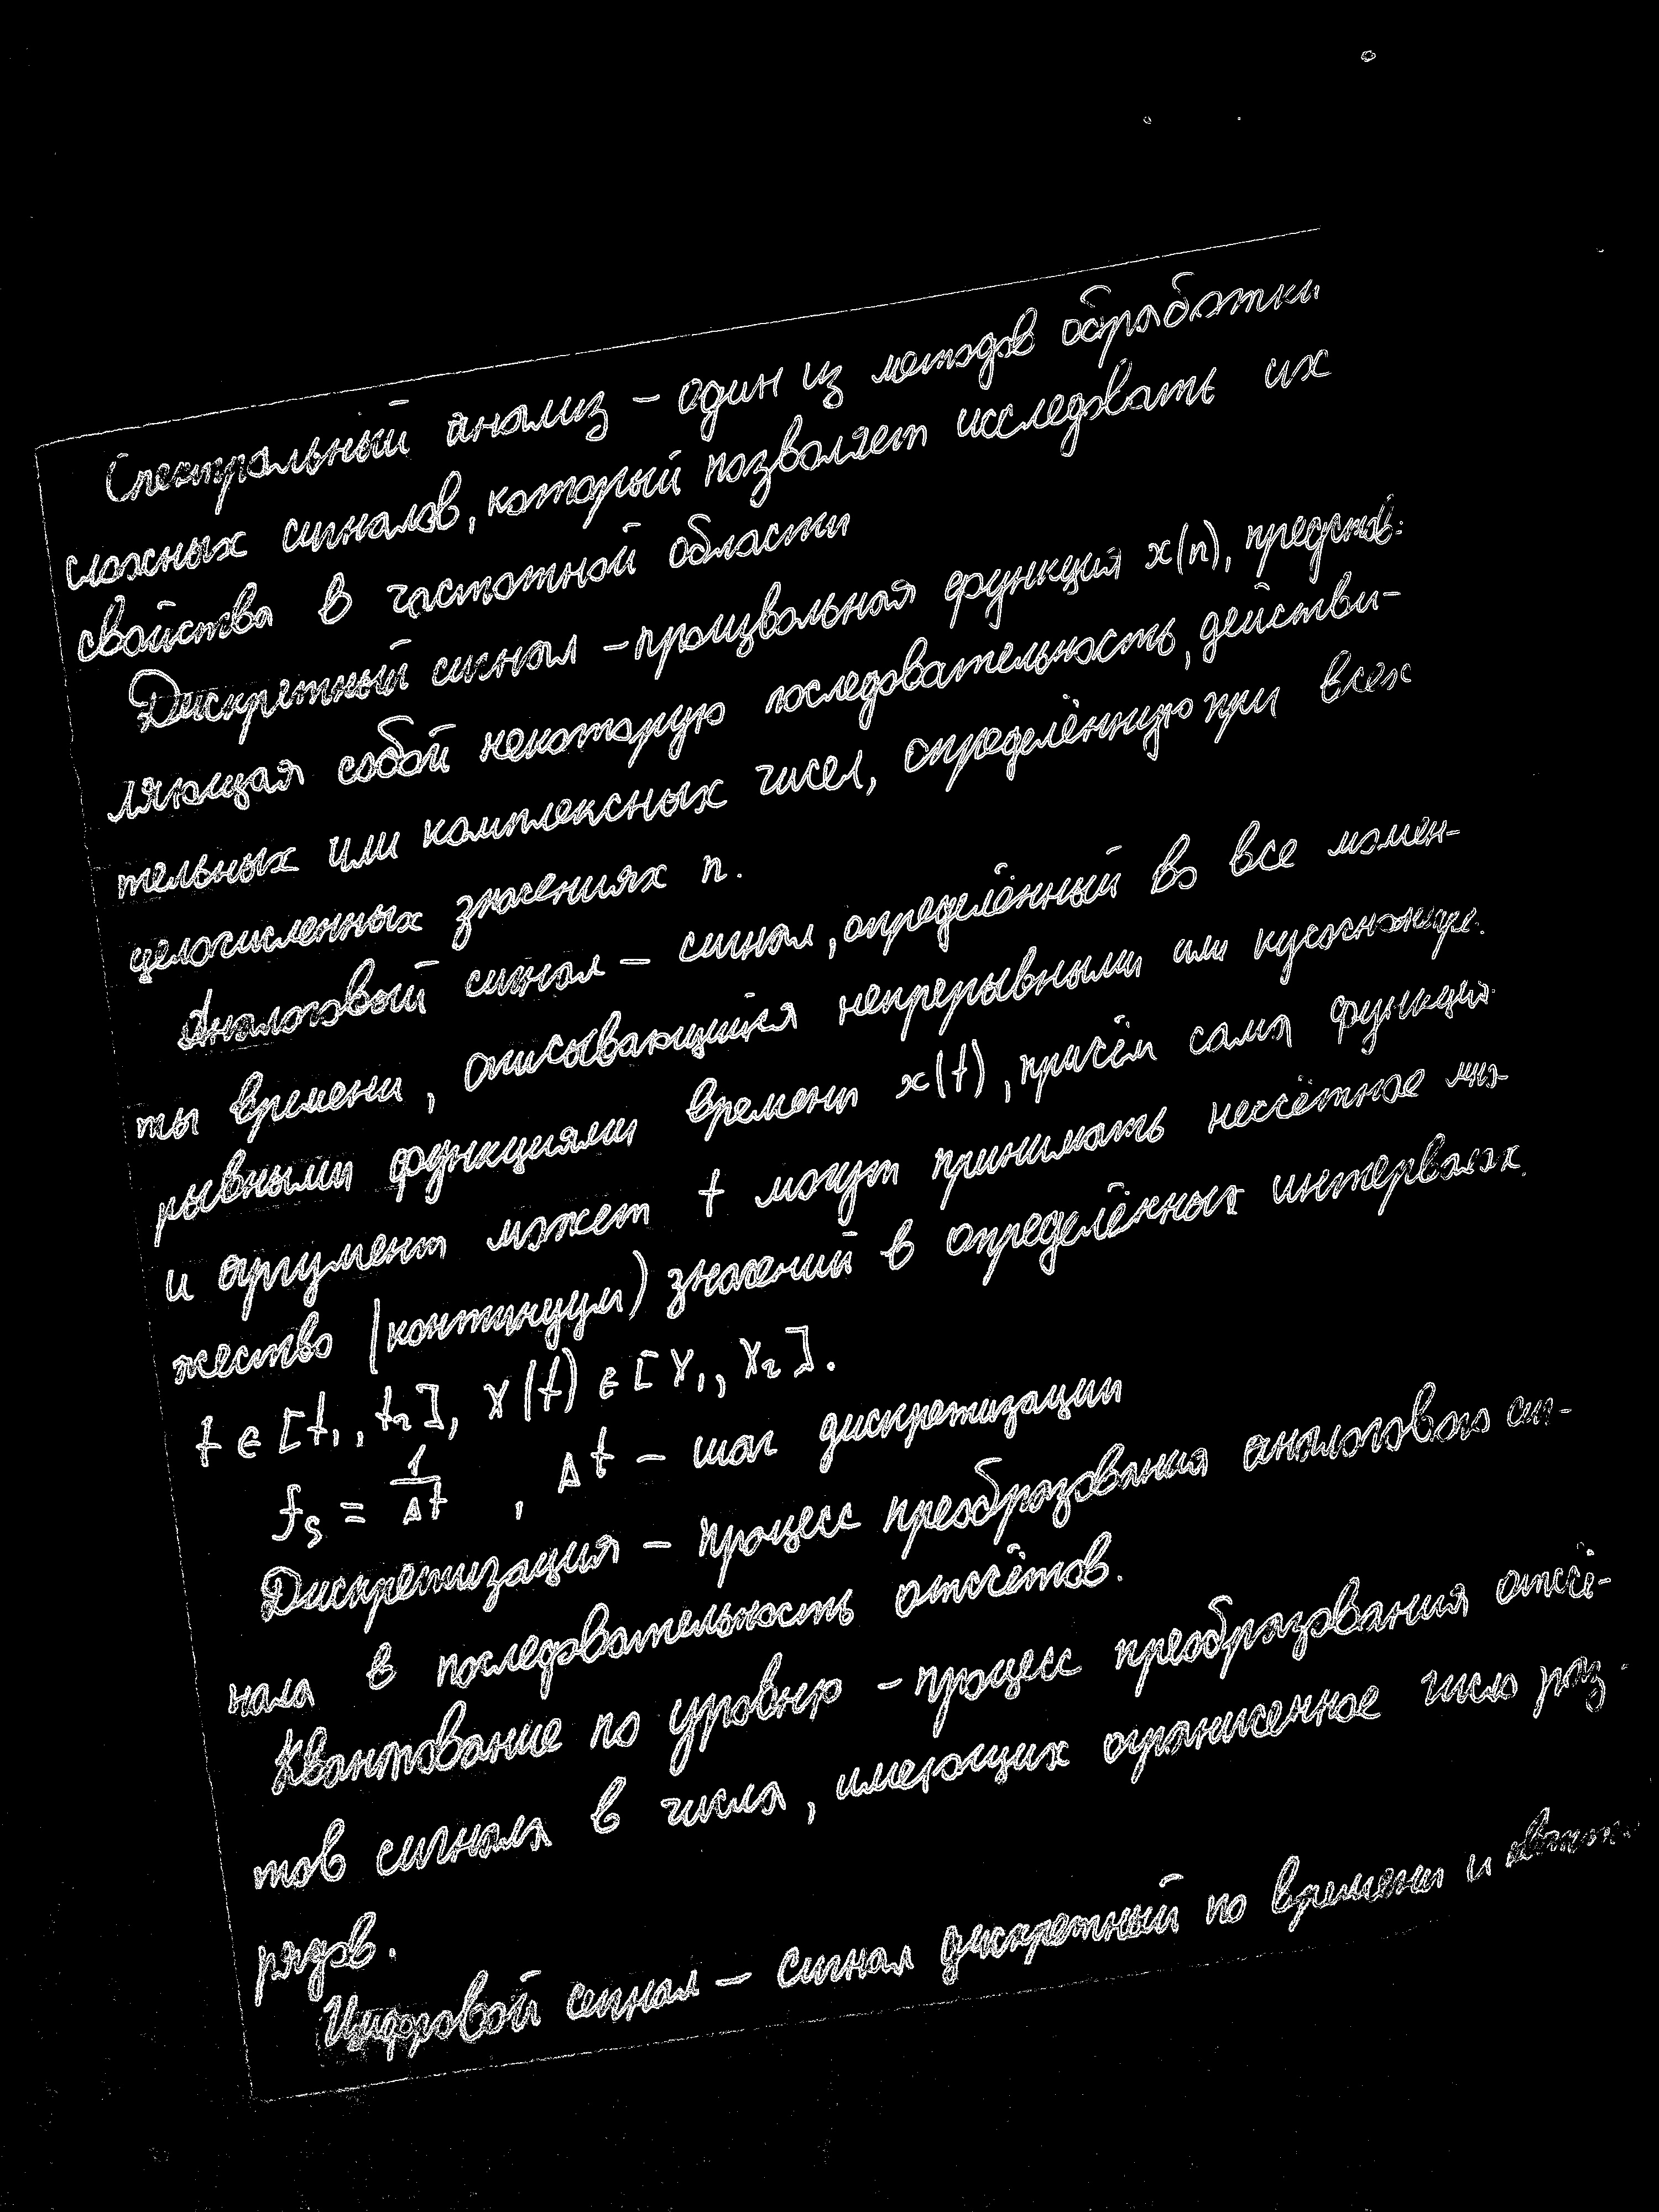 Спектральный анализ – один из методов обработки
сложных сигналов, который позволяет исследовать их
свойства в частотной области
Дискретный сигнал – произвольная функция x(n), представ-
ляющая собой некоторую последовательность, действи-
тельных или комплексных чисел, определённую при всех
целочисленных значениях n.
Аналоговый сигнал – сигнал, определённый во все момен-
ты времени, описывающийся непрерывными или кусочнонепре-
рывными функциями времени x(t), причём сама функция
и аргумент может t могут принимать несчётное мно-
жество (континуум) значений в определённых интервалах.
t ∈ [t₁, t₂], x(t) ∈ [x₁, x₂].
fs = 1/Δt , Δt – шаг дискретизации
Дискретизация – процесс преобразования аналогового сиг-
нала в последовательность отсчётов.
Квантование по уровню – процесс преобразования отсчё-
тов сигнала в числа, имеющих ограниченное число раз-
рядов.
Цифровой сигнал – сигнал дискретный по времени и